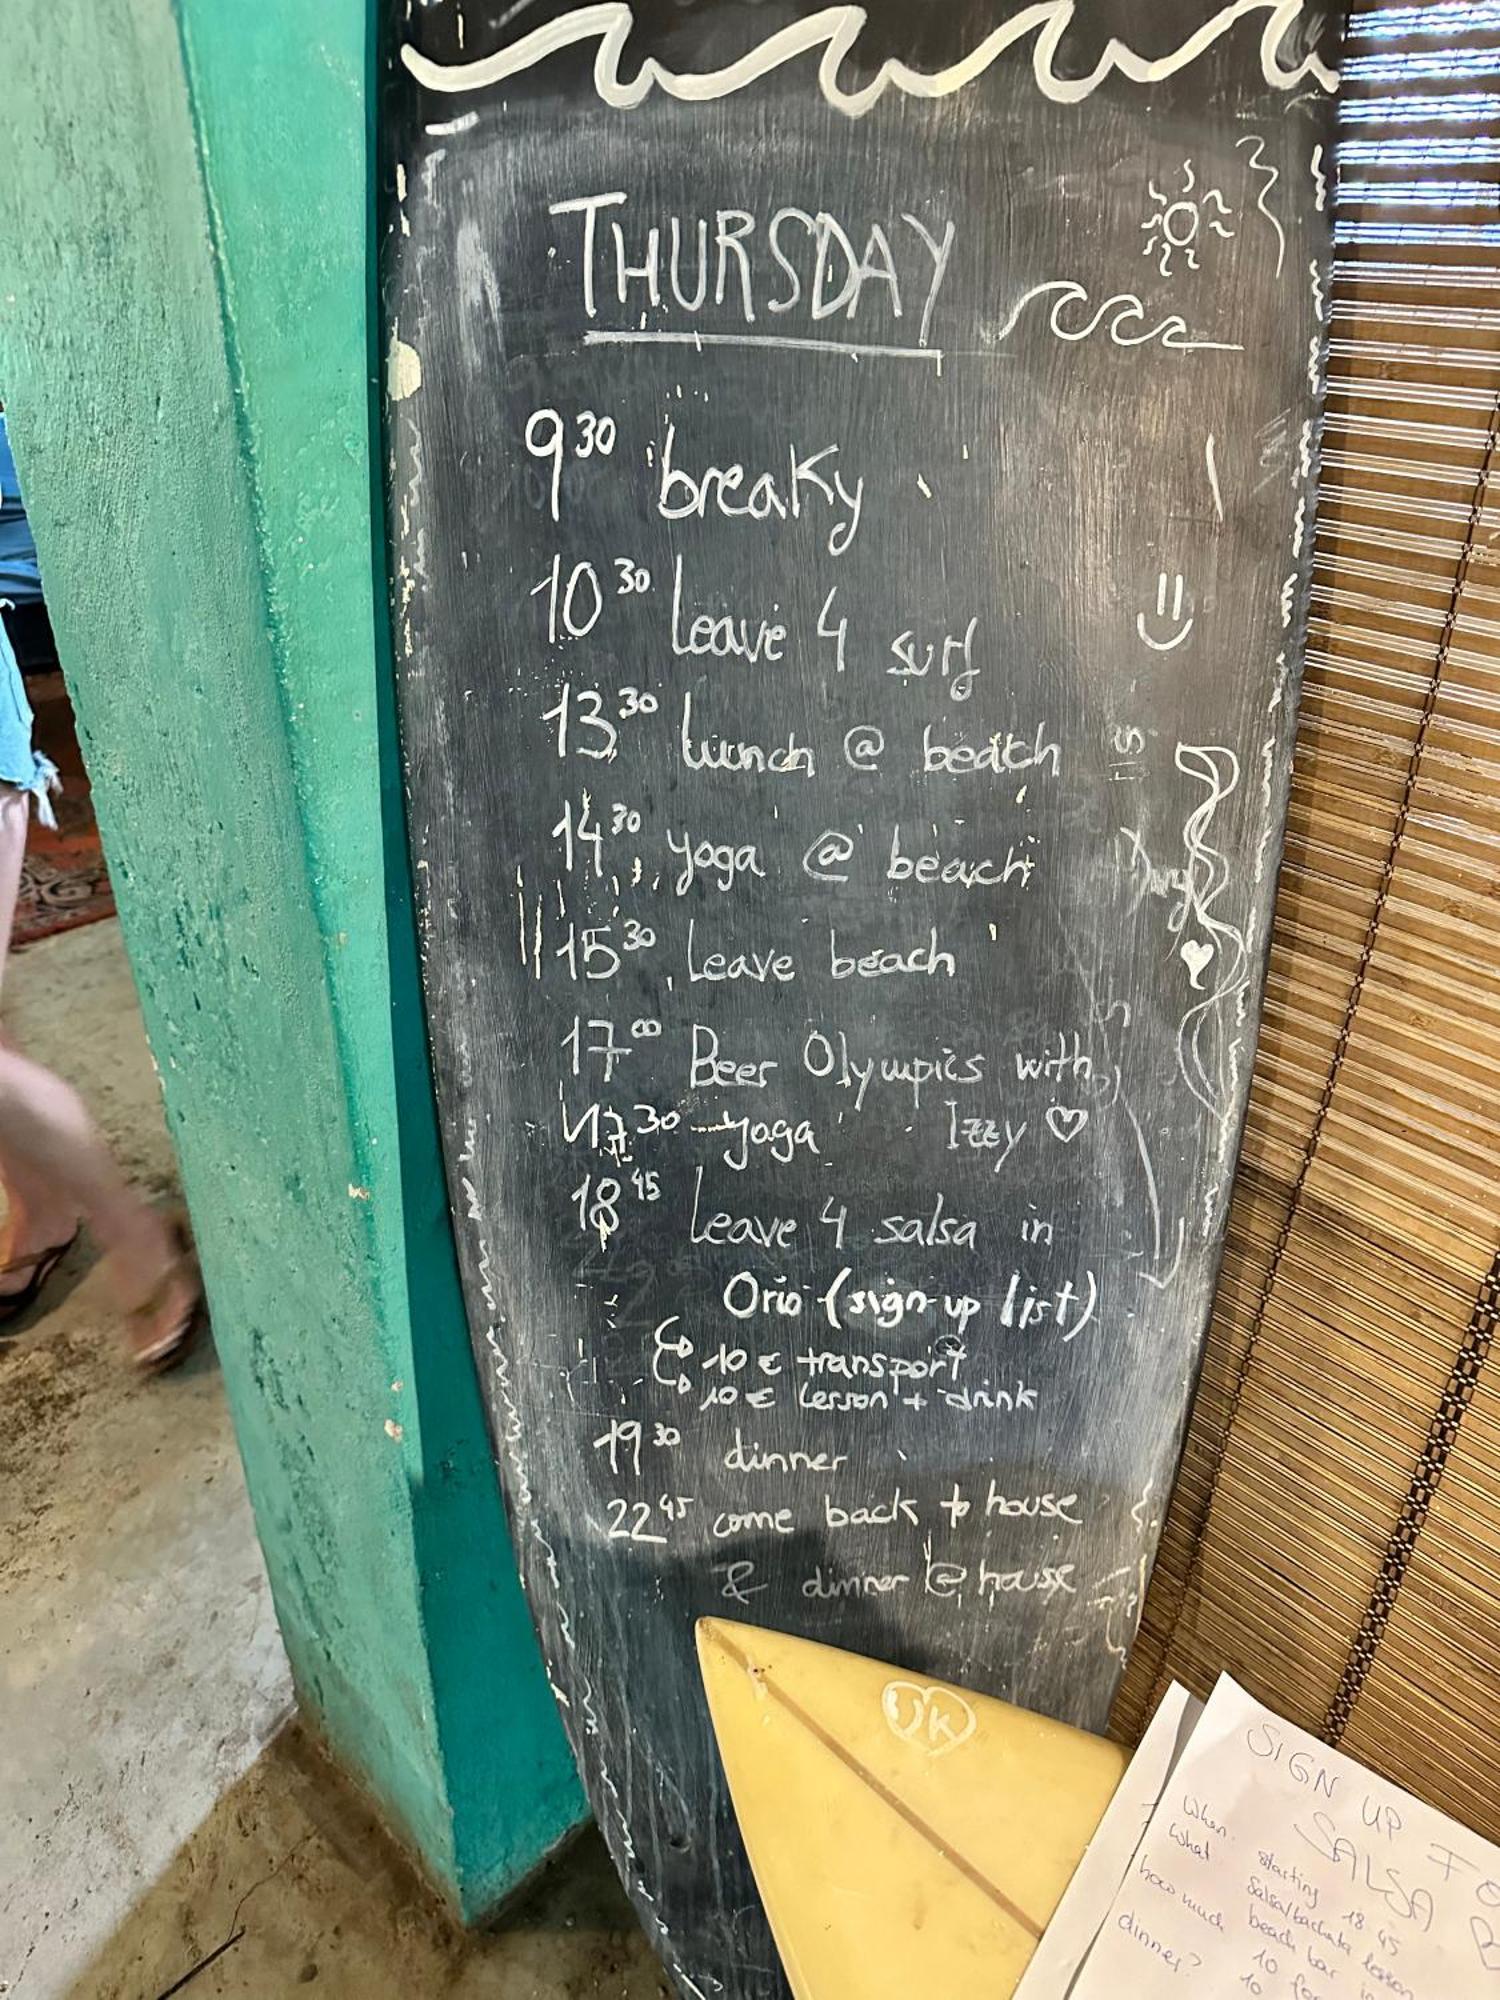 THURSDAY
9 30 breaky
10 30 leave 4 surf
13 30 lunch @ beach
14 30 yoga @ beach
15 30 leave beach
17 00 Beer Olympics with
Izzy ♡
17 30 yoga
18 45 leave 4 salsa in
Orio (sign-up list)
10 € transport
10 € lesson + drink
19 30 dinner
22 45 come back to house
& dinner @ house
UK
SIGN UP
SALSA
When: starting 18 45
What Salsa/bachata lesson
beach bar in
how much 10 for
dinner? 10